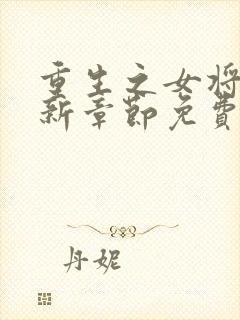 重生之女将
新章節免費
丹妮